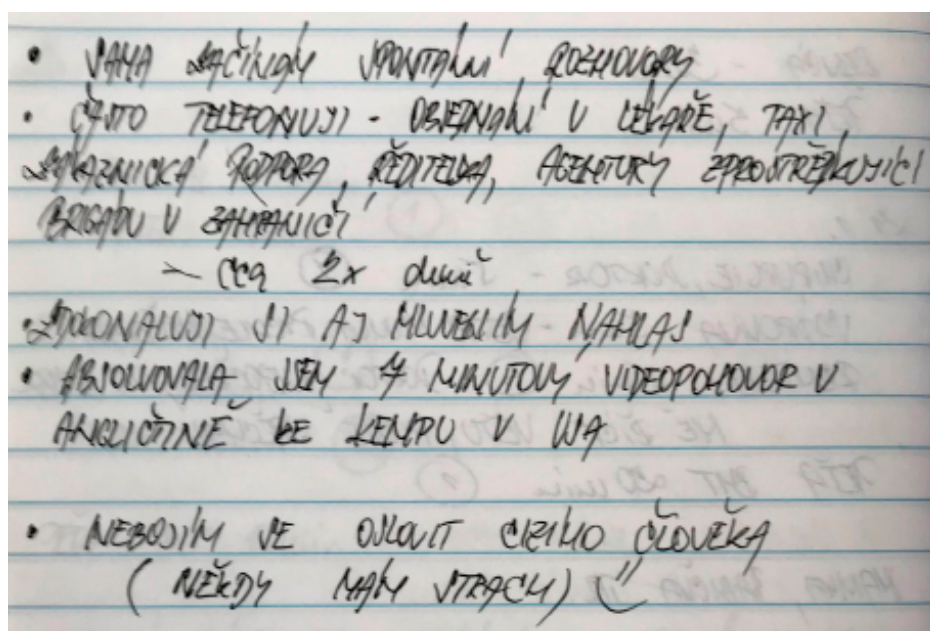 • SAMA ZAČÍNÁM SPONTÁNNÍ ROZHOVORY
• ČASTO TELEFONUJI - OBJEDNÁNÍ U LÉKAŘE, TAXI,
ZÁKAZNICKÁ PODPORA, ŘEDITELKA, AGENTURY ZPROSTŘEDKUJÍCÍ
BRIGÁDU V ZAHRANIČÍ
- cca 2x denně
• ZDOKONALUJI SI AJ MLUVENÍM NAHLAS
• ABSOLVOVALA JSEM 7 MINUTOVÝ VIDEOPOHOVOR V
ANGLIČTINĚ KE KEMPU V
• NEBOJÍM SE OSLOVIT CIZÍHO ČLOVĚKA
(NĚKDY MÁM STRACH)